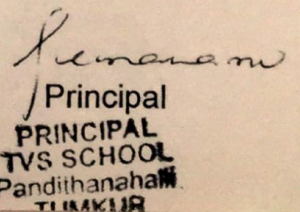 Principal
PRINCIPAL
TVS SCHOOL
Pandithanahalli
TUMKUR